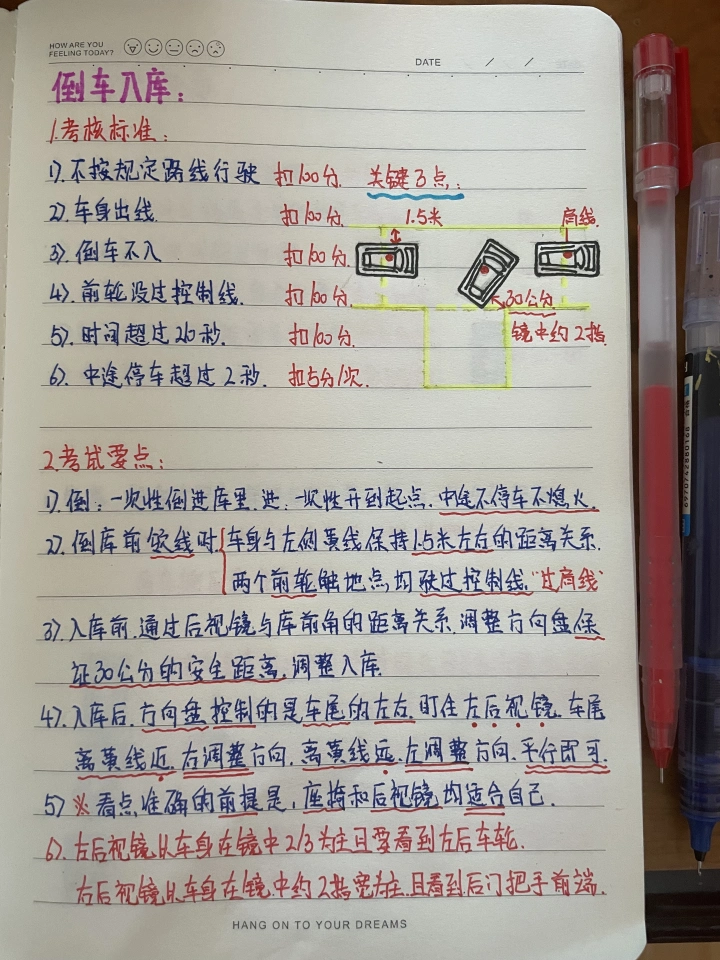 HOW ARE YOU
FEELING TODAY?
DATE / /
倒车入库:
1.考核标准:
1).不按规定路线行驶 扣100分. 关键3点:
2).车身出线. 扣100分. 1.5米 肩线.
3).倒车不入 扣100分.
4).前轮没过控制线. 扣100分. 30公分
5).时间超过210秒. 扣100分 镜中约2指.
6).中途停车超过2秒. 扣5分/次.
2.考试要点:
1).倒:一次性倒进库里.进:一次性开到起点.中途不停车不熄火.
2).倒库前饮线时.车身与左侧黄线保持1.5米左右的距离关系.
两个前轮触地点.均驶过控制线."过肩线"
3).入库前.通过后视镜与库前角的距离关系.调整方向盘保
证30公分的安全距离.调整入库.
4).入库后.方向盘控制的是车尾的左右.盯住左后视镜.车尾
离黄线近.右调整方向.离黄线远.左调整方向.平行即可.
5)※看点准确的前提是,座椅和后视镜均适合自己.
6).左后视镜从车身在镜中2/3为主且要看到左后车轮.
右后视镜从车身在镜中约2指宽为主.且看到后门把手前端.
HANG ON TO YOUR DREAMS
6970742860168